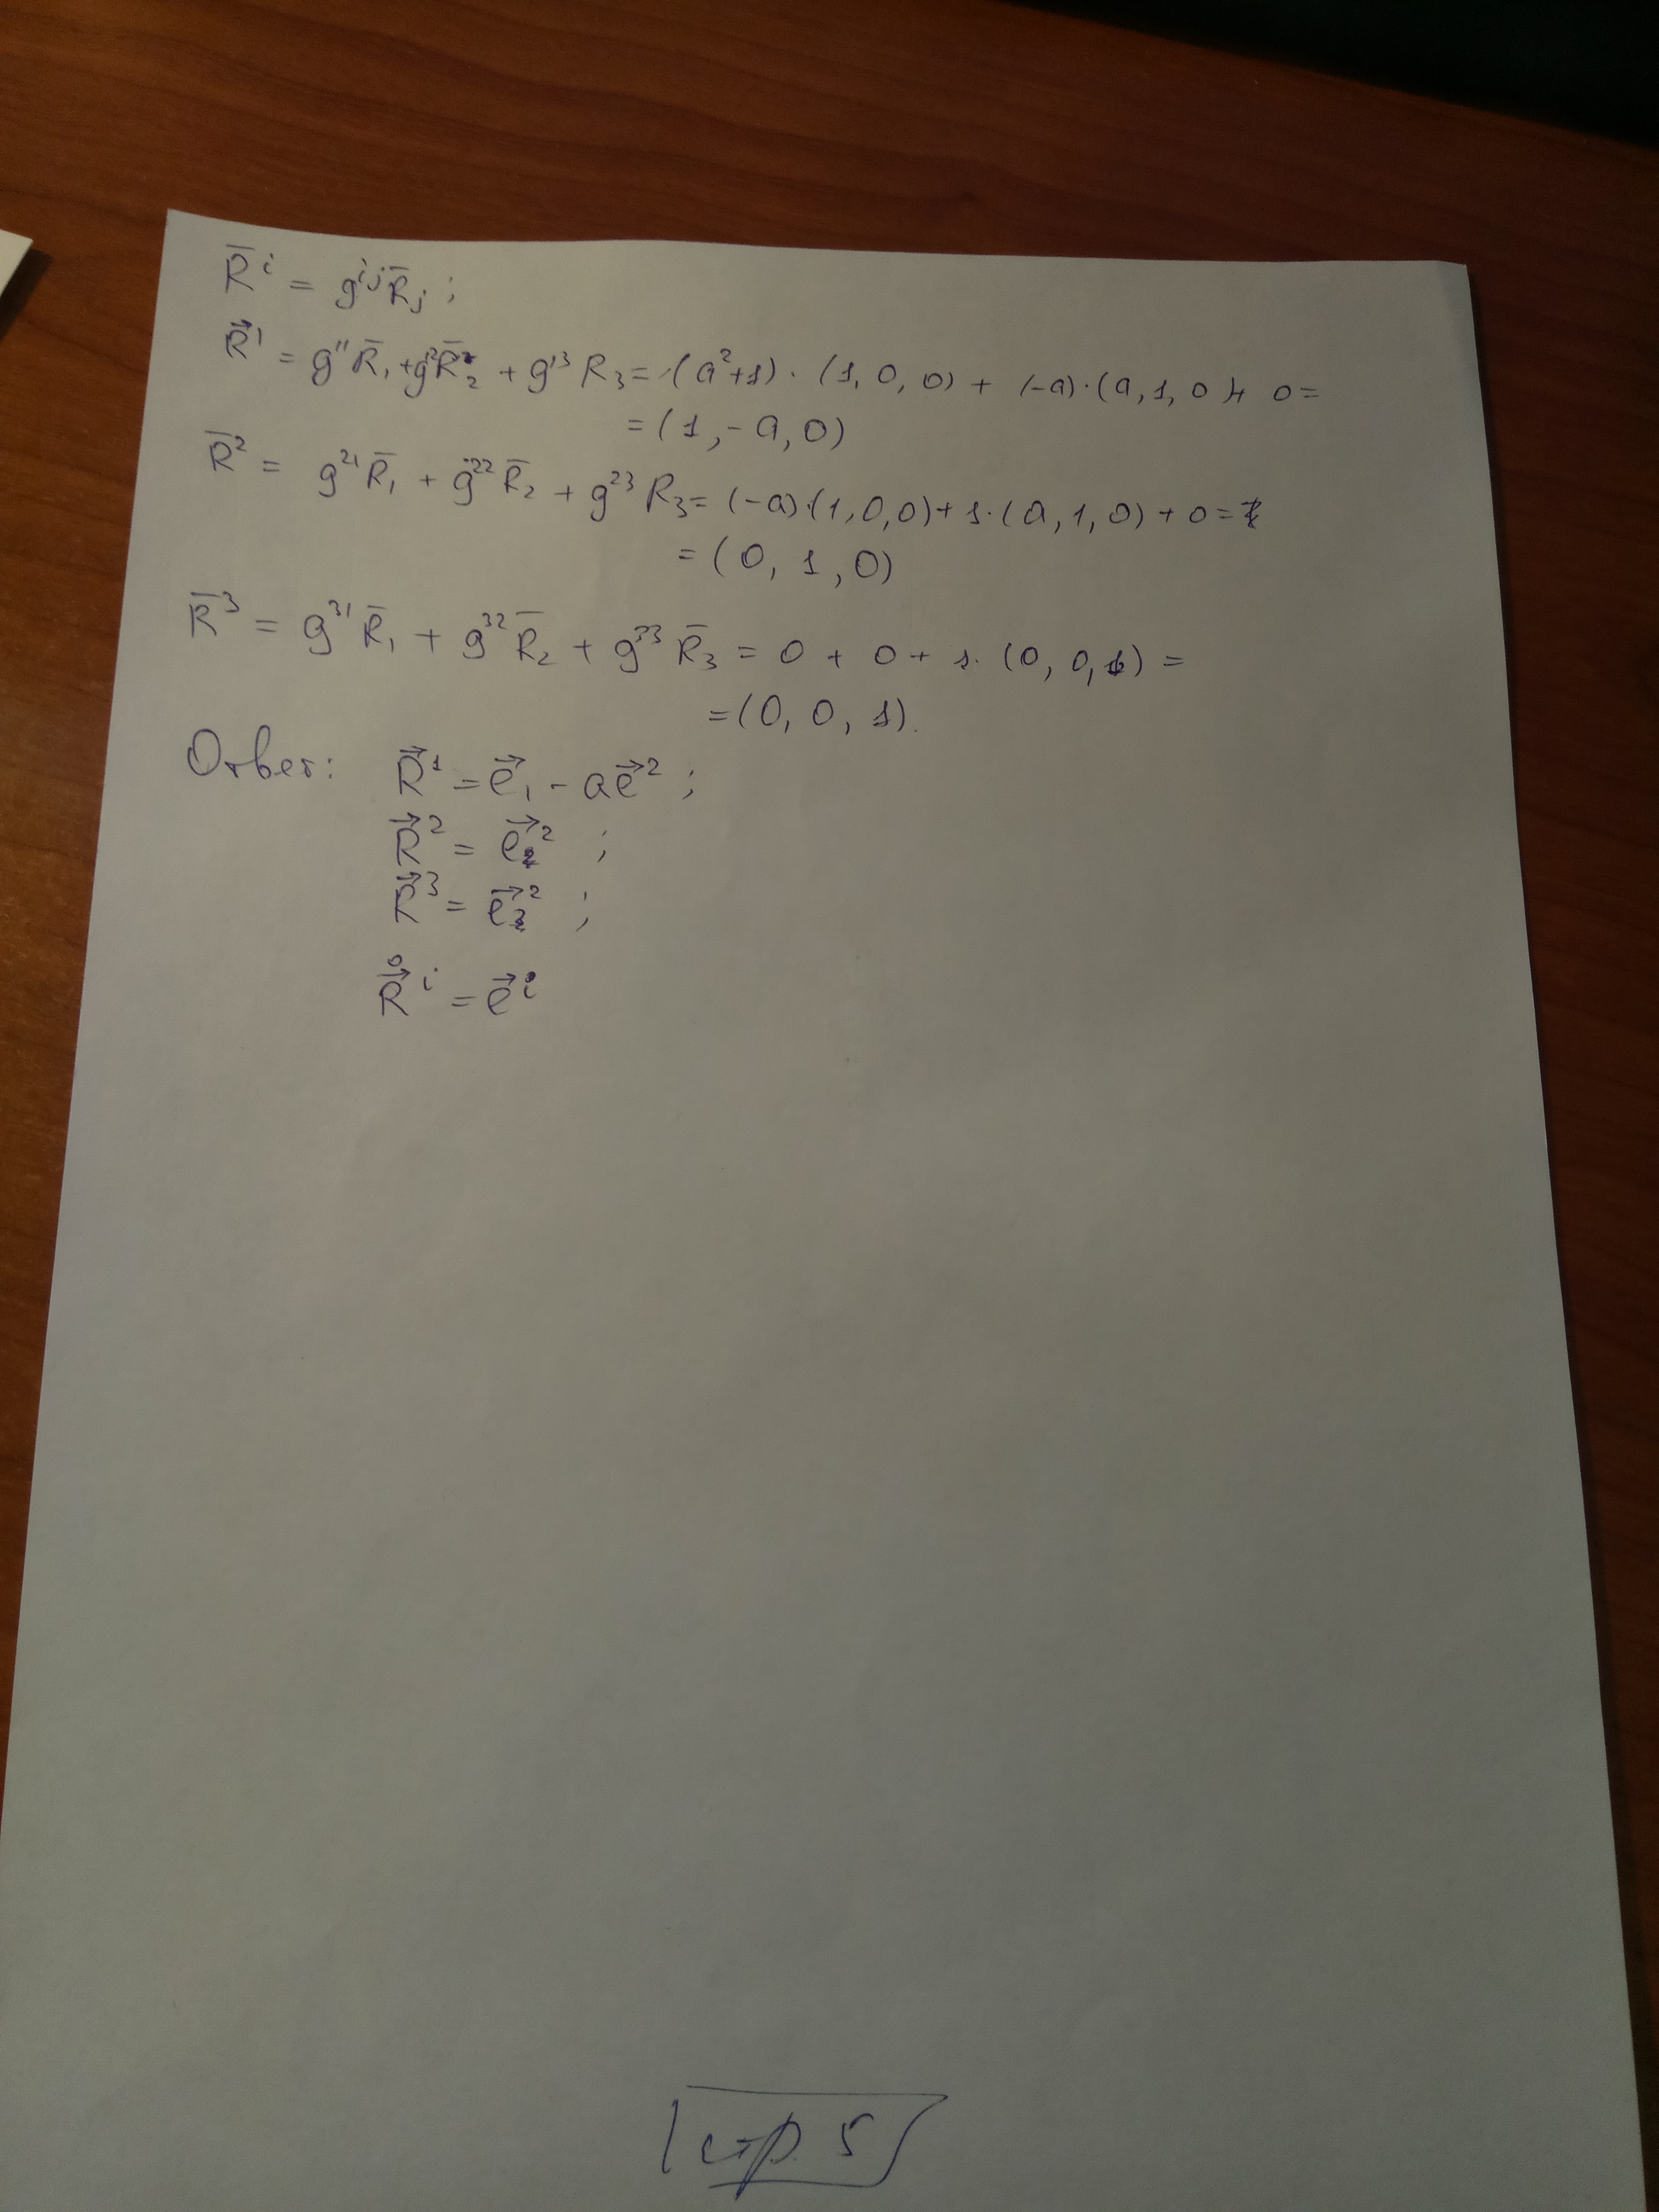 R̅ⁱ = gⁱʲR̅ⱼ ;
R⃗¹ = g¹¹R̅₁ + g¹²R̅₂ + g¹³R₃ = (a²+1)·(1, 0, 0) + (-a)·(a, 1, 0) + 0 =
= (1, -a, 0)
R̅² = g²¹R̅₁ + g²²R̅₂ + g²³R₃ = (-a)·(1, 0, 0) + 1·(a, 1, 0) + 0 =
= (0, 1, 0)
R̅³ = g³¹R̅₁ + g³²R̅₂ + g³³R̅₃ = 0 + 0 + 1·(0, 0, 1) =
= (0, 0, 1).
Ответ: R⃗¹ = e⃗₁ - ae⃗² ;
R⃗² = e⃗² ;
R⃗³ = e⃗² ;
R⃗̊ⁱ = e⃗ⁱ
стр. 5